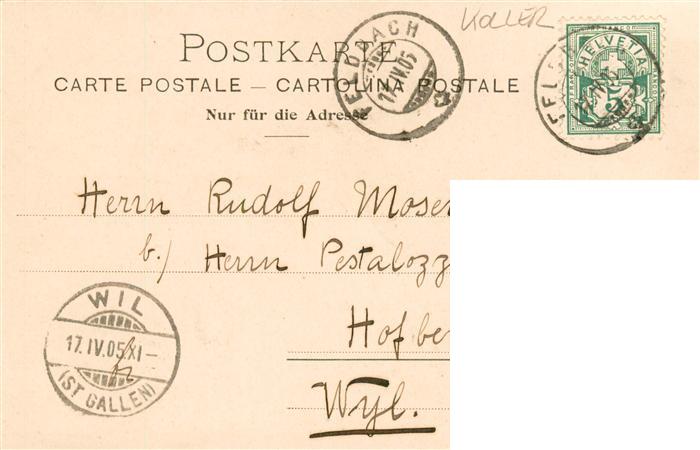 KOLLER
POSTKARTE
CARTE POSTALE — CARTOLINA POSTALE
Nur für die Adresse
FELDBACH
17.IV.05
HELVETIA
FRANCO
5
Herrn Rudolf Moser
b./ Herrn Pestalozz
Hofbe
Wyl.
WIL
17.IV.05 XI—
(ST GALLEN)